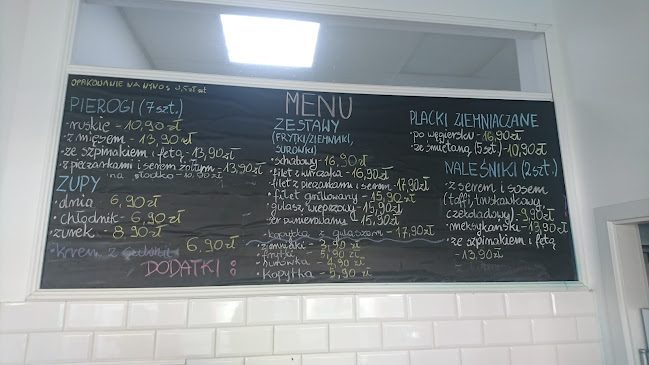 OPAKOWANIE NA WYNOS 0,5 zł szt
PIEROGI (7 szt.)
• ruskie - 10,90 zł
• z mięsem - 13,90 zł
• ze szpinakiem i fetą - 13,90 zł
• z pieczarkami i serem żółtym - 13,90 zł
na słodko - 10,90 zł
ZUPY
• dnia 6,90 zł
• chłodnik - 6,90 zł
• żurek - 8,90 zł
• krem z 6,90 zł
DODATKI :
MENU
ZESTAWY
(FRYTKI/ZIEMNIAKI,
SURÓWKI)
• schabowy - 16,90 zł
• filet z kurczaka - 16,90 zł
• filet z pieczarkami i serem - 17,90 zł
• filet grillowany - 15,90 zł
• gulasz wieprzowy - 15,90 zł
ser panierowany - 15,90 zł
• kopytka z gulaszem - 17,90 zł
• ziemniaki - 3,90 zł
• frytki - 5,90 zł
• surówka - 4,90 zł
• kopytka - 5,90 zł
PLACKI ZIEMNIACZANE
• po węgiersku - 16,90 zł
• ze śmietaną (5 szt.) - 10,90 zł
NALEŚNIKI (2 szt.)
• z serem i sosem
(toffi, truskawkowy,
czekoladowy) - 9,90 zł
• meksykański - 13,90 zł
• ze szpinakiem i fetą
- 13,90 zł